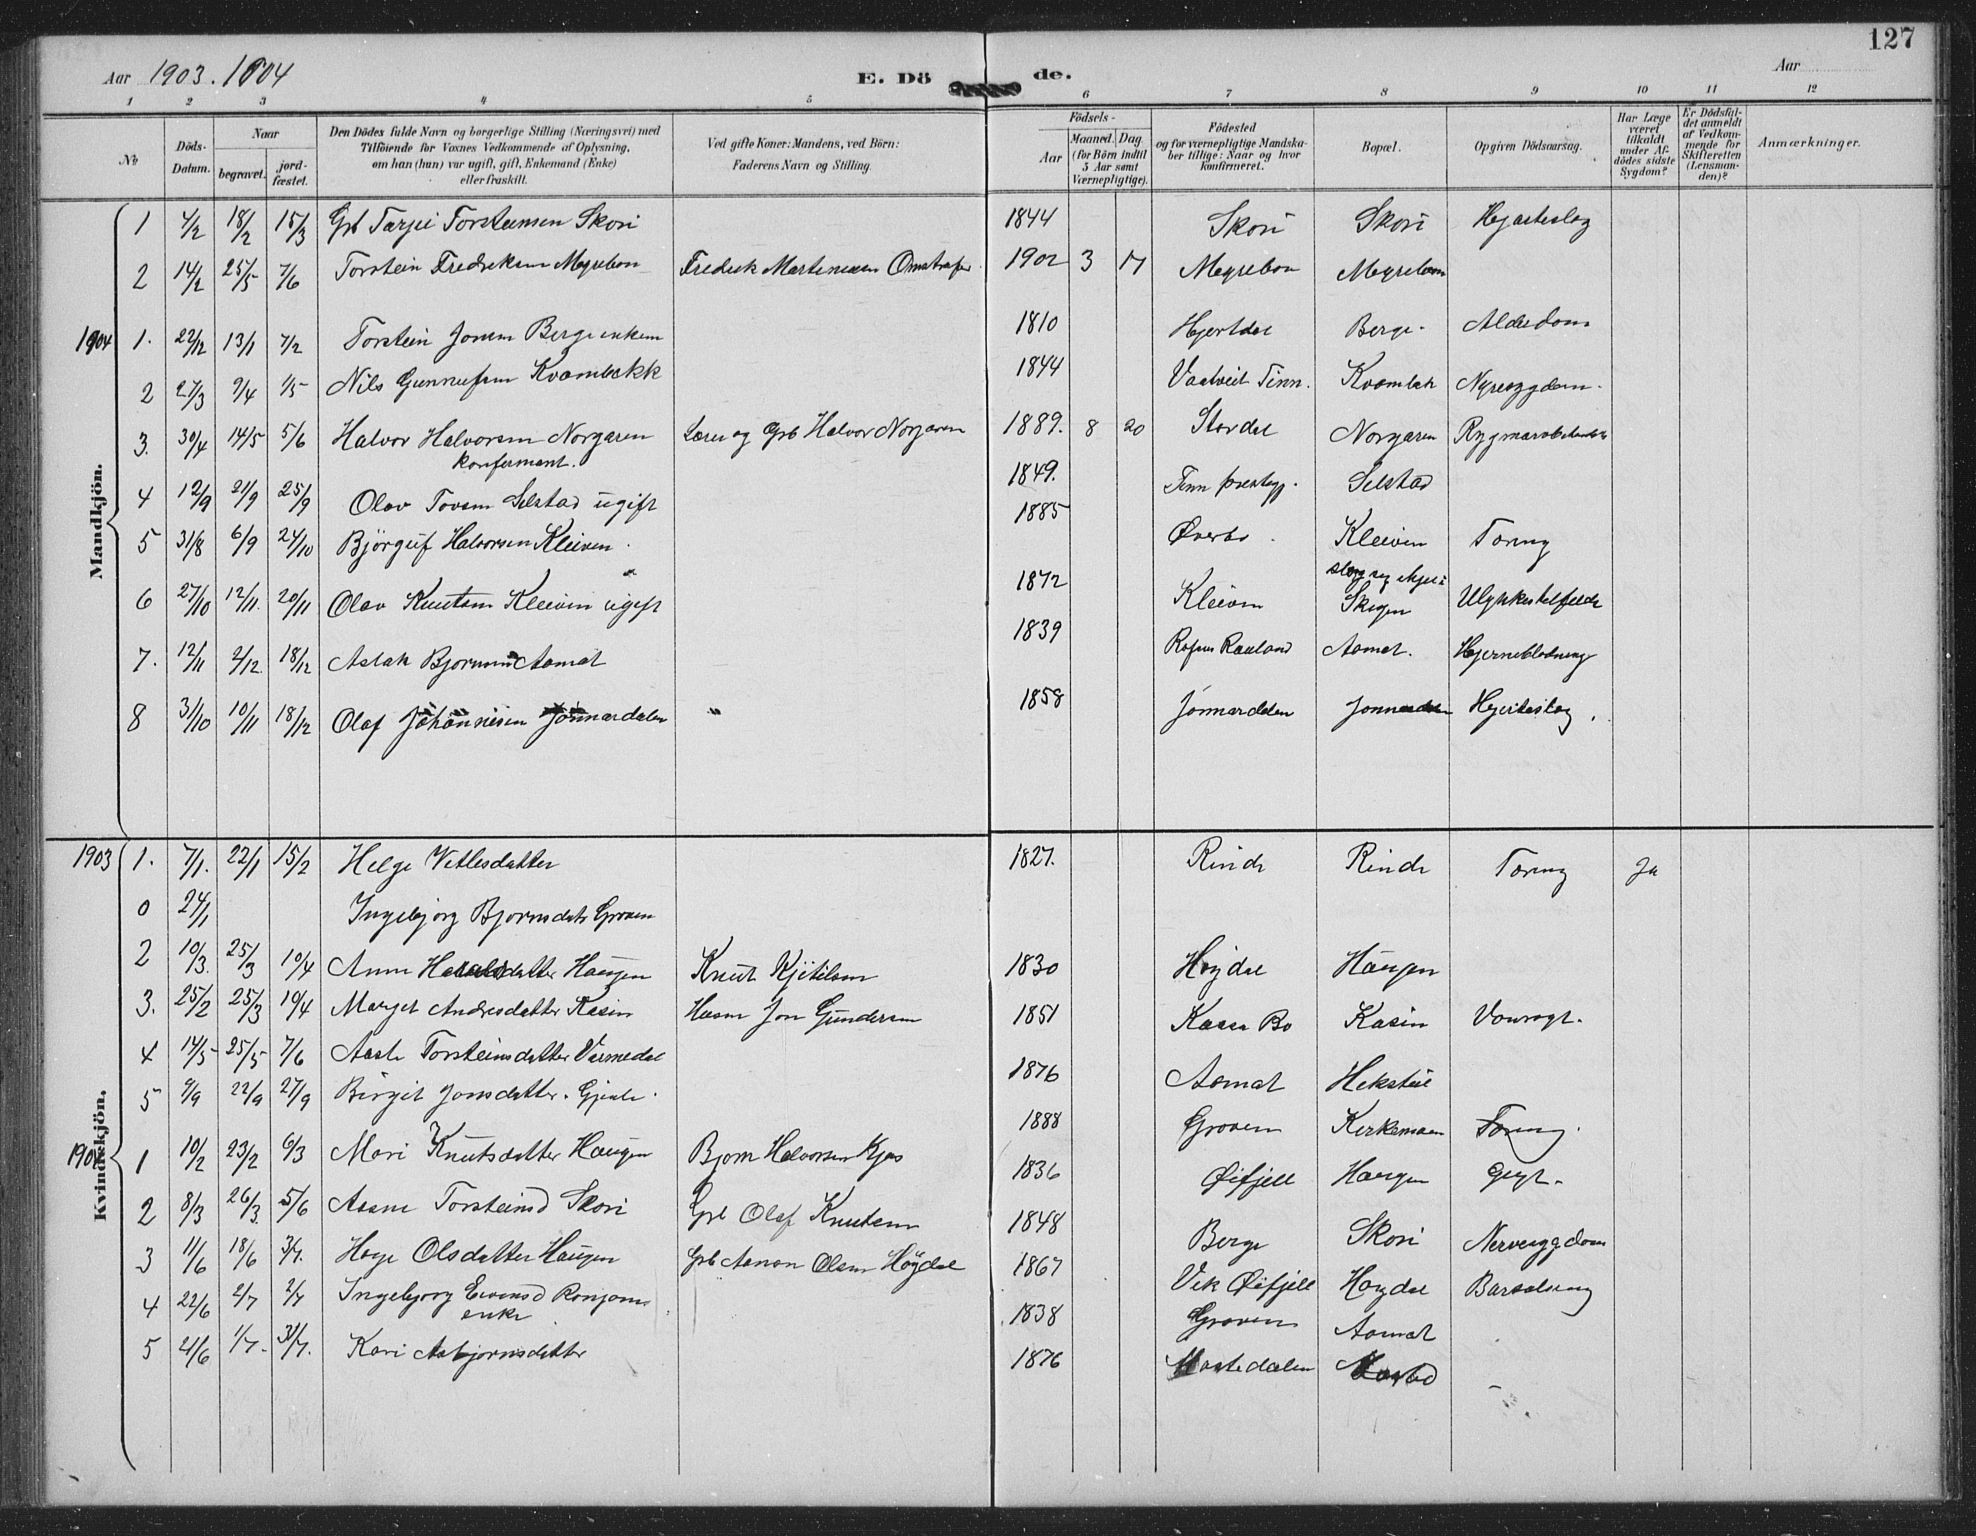 127
Aar 1903. 1904
E. Dö de.
Aar
1 2 3 4 5 6 7 8 9 10 11 12
No
Döds-Datum.
Naar
begravet.
jord-fæstet.
Den Dödes fulde Navn og borgerlige Stilling (Næringsvei) med
Tilföiende for Voxnes Vedkommende af Oplysning,
om han (hun) var ugift, gift, Enkemand (Enke)
eller fraskilt.
Ved gifte Koner: Mandens, ved Börn:
Faderens Navn og Stilling.
Födsels-
Aar
Maaned. Dag
(for Börn indtil
5 Aar samt
Værnepligtige).
Födested
og for værnepligtige Mandska-
ber tillige: Naar og hvor
konfirmeret.
Bopæl.
Opgiven Dödsaarsag.
Har Læge
været
tilkaldt
under Af-
dödes sidste
Sygdom?
Er Dödsfal-
det anmeldt
af Vedkom-
mende for
Skifteretten
(Lensman-
den)?
Anmærkninger.
Mandkjön.
1 4/2 18/2 15/3 Gbr Tarjei Torsteinsen Skori 1844 Skori Skori Hjerteslag
2 14/2 25/5 7/6 Torstein Fredriksen Myrebon 1902 3 17 Myrebon Myreboen
1904 1. 22/12 13/1 7/2 Torstein Jonsen Berge enkem 1810 Hjertdal Berge Alderdom
2 27/3 9/4 1/5 Nils Gunnufsen Kvambekk 1844 Vaatveit Tinn. Kvambek Nyresygdom.
3. 30/4 14/5 5/6 Halvor Halvorsen Norgaren Lærer og Gbr Halvor Norgaren 1889. 8 20 Stordal Norgaren
konfermant.
4 12/9 21/9 25/9 Olav Tovsen Selstad ugift 1849. Tinn prestegj. Selstad
5 31/8 6/9 24/10 Björguf Halvorsen Kleiven 1885 Øverbö Kleiven Tæring
6 27/10 12/11. 20/11 Olav Knutsen Kleivin ugift 1872 Kleiven Skogen Ulykkestilfelde
7. 12/11 2/12. 18/12 Aslak Bjornsen Aamot 1839 Rauland Aamot. Hjerneblødning
8 3/10 10/11 18/12 Olaf Johannesen Jönnardalen 1858 Jönnardalen Jonnardalen Hjerteslag.
Kvindekjön.
1903 1. 7/1. 22/1 15/2 Helge Vetlesdatter 1827. Rinde Rinde Tæring Ja
0 24/1 Ingebjørg Bjornsdatr Groven
2 10/3. 25/3 10/4 Anne datter Haugen Knut Kjetilsen 1830 Høydal Haugen
3. 25/2 25/3 10/4 Marget Andresdatter Kasin Husm Jon Gundersen 1851 Kaasa Bø Kasin Vansogt.
4 14/5 25/5 7/6 Aaste Torsteinsdatter Varmedal 1876 Aamot Hekstul
5 9/9 22/9 27/9 Birgit Jonsdatter. 1888 Groven Kirkemoen Tæring.
1904 1 10/2 23/2 6/3 Mari Knutsdatter Haugen Bjorn Halvorsen 1836 Øifjell Haugen Gigt.
2 8/3 26/3. 5/6 Aasne Torsteinsd Skori Gbr Olaf Knutsen 1848 Berge Skori Nervesygdom
3 11/6 18/6 3/7. Hæge Olsdatter Haugen Gbr Aanon Olsen Høydal 1867 Vik Øifjell Høydal Barselseng
4 22/6 2/7 2/7 Ingebjorg Eivensd 1838 Groven Aamot
enke
5 21/6 1/7. 31/7. Kari Asbjornsdatter 1876